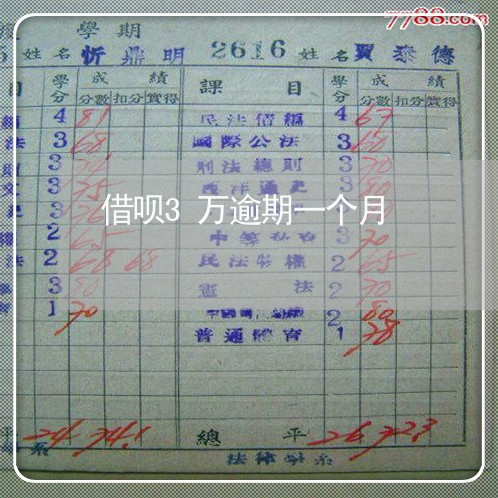 7788.com
學期
姓名 忻鼎明 2616 姓名 賈泰德
目 學分 成績 課目 學分 成績
分數 扣分 實得 分數 扣分 實得
4 81 民法債編 4 67
法 3 68 國際公法 3 60
3 刑法總則 3 70
3 75 西洋通史 3 80
借呗3 万逾期一个月
2 65 3 70
法 2 68 68 民法物權 2 65
3 80 憲法 2 70
1 70 2 80
普通體育 1 78
平 24 74.1 總平 26 72.3
系 法律學系